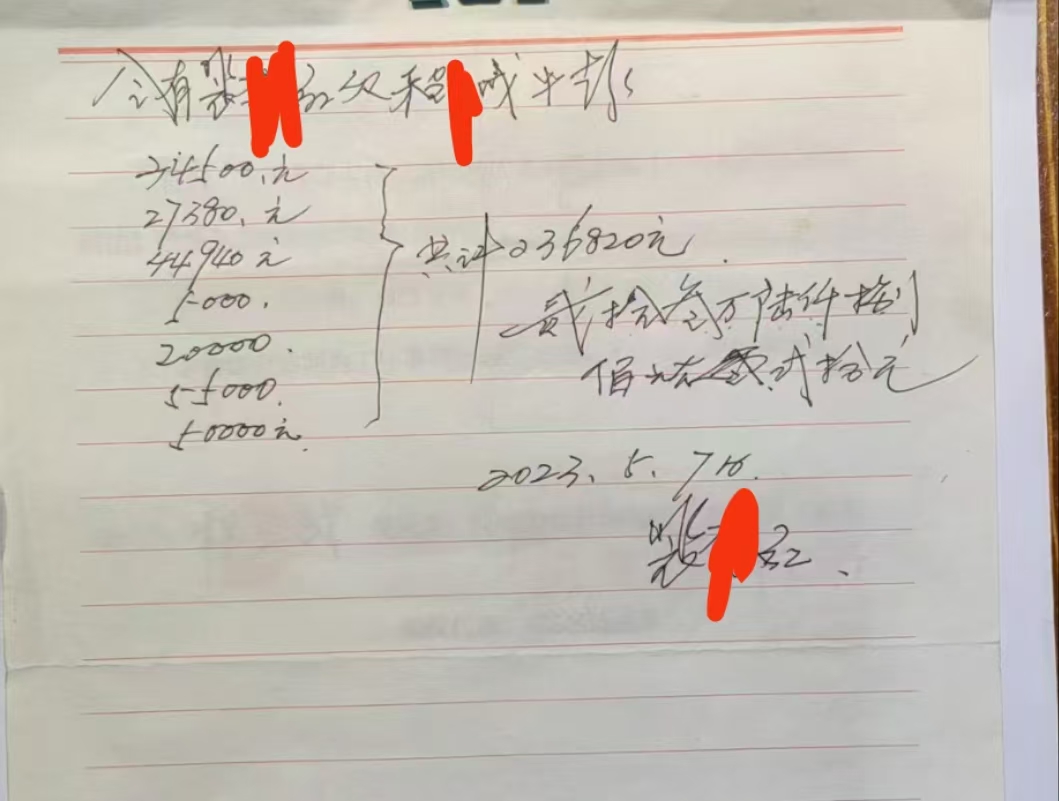 今有裴 红欠程 牛款
34500.元
27380.元
44940元
5000.
20000.
55000.
50000元.
共计236820元.
贰拾叁万陆仟捌
佰 贰拾元
2023.5.7日.
裴 红